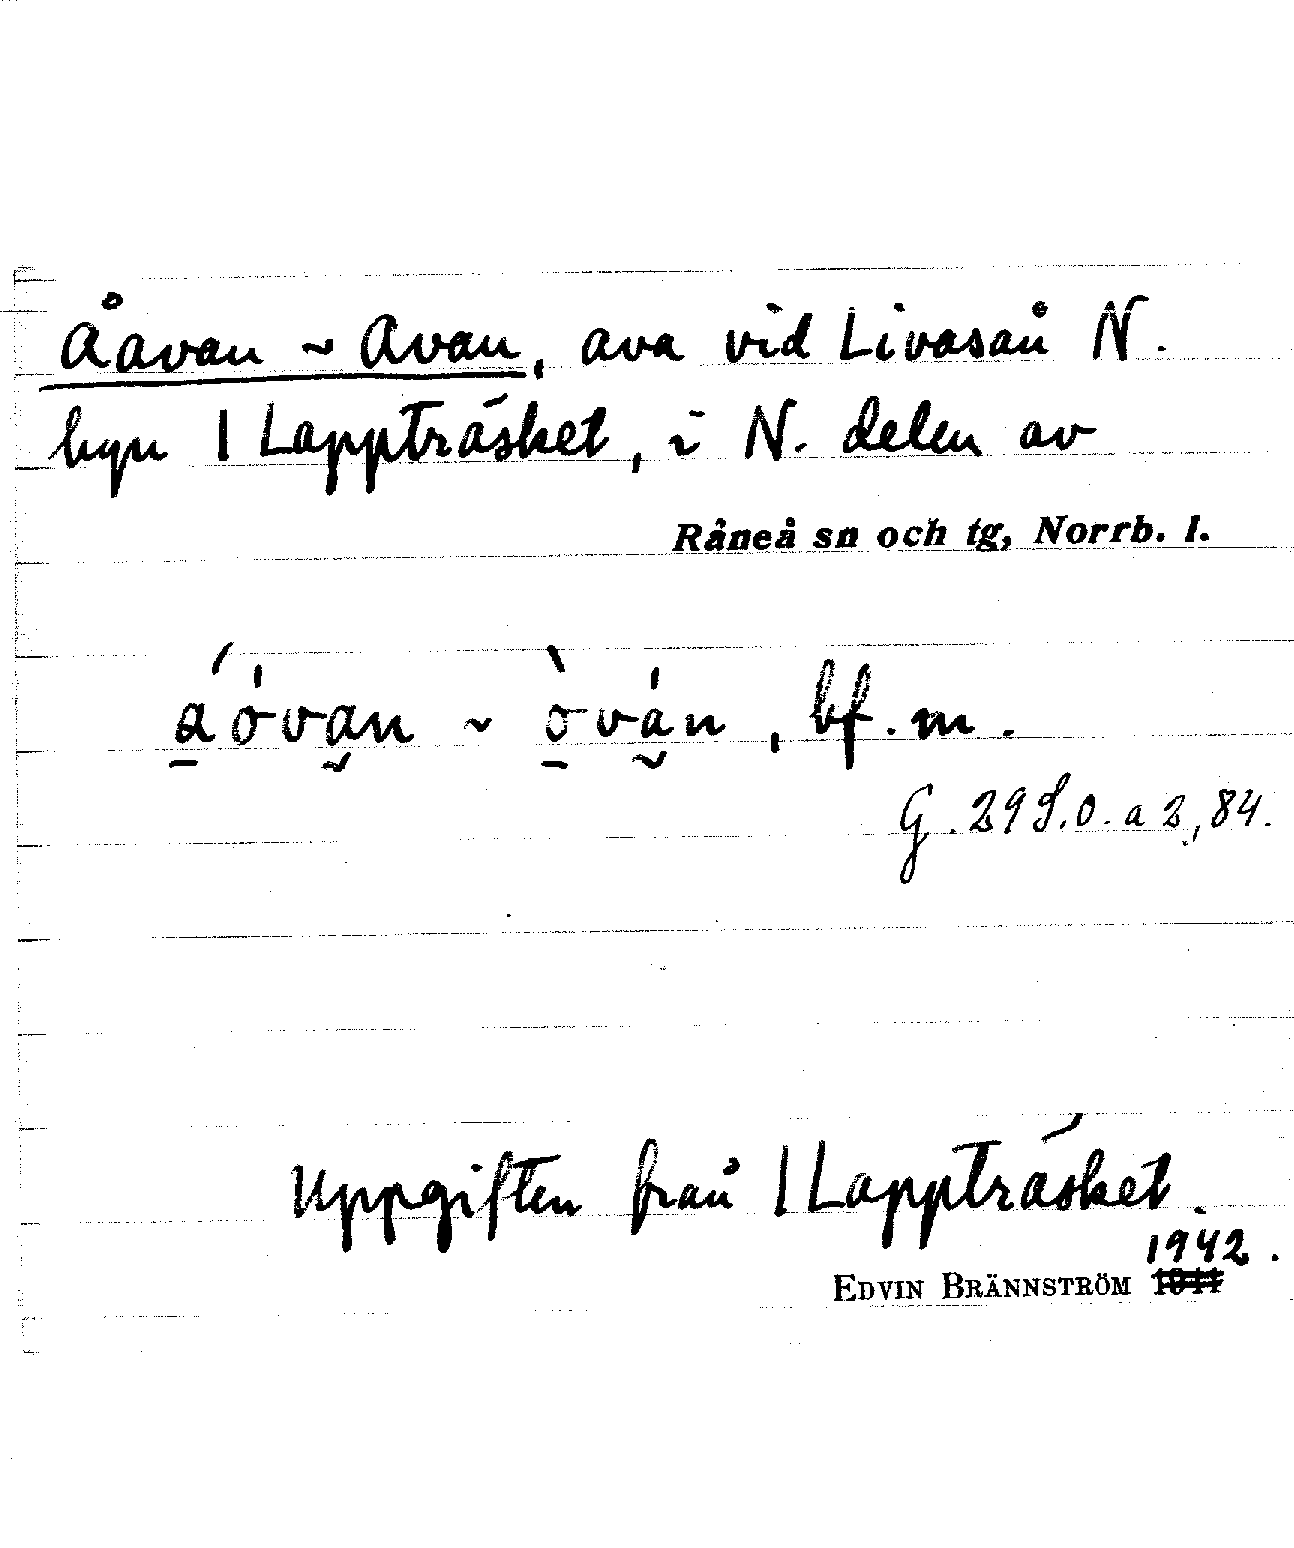 Åavan ~ Avan, ava vid Livasån N.
byn 1 Lappträsket, i N. delen av
Råneå sn och tg, Norrb. l.
á̱óva̮n ~ ò̱vá̮n, bf. m.
G. 29 S.O. a 2, 84.
Uppgiften från 1 Lappträsket.
1942.
EDVIN BRÄNNSTRÖM 1941